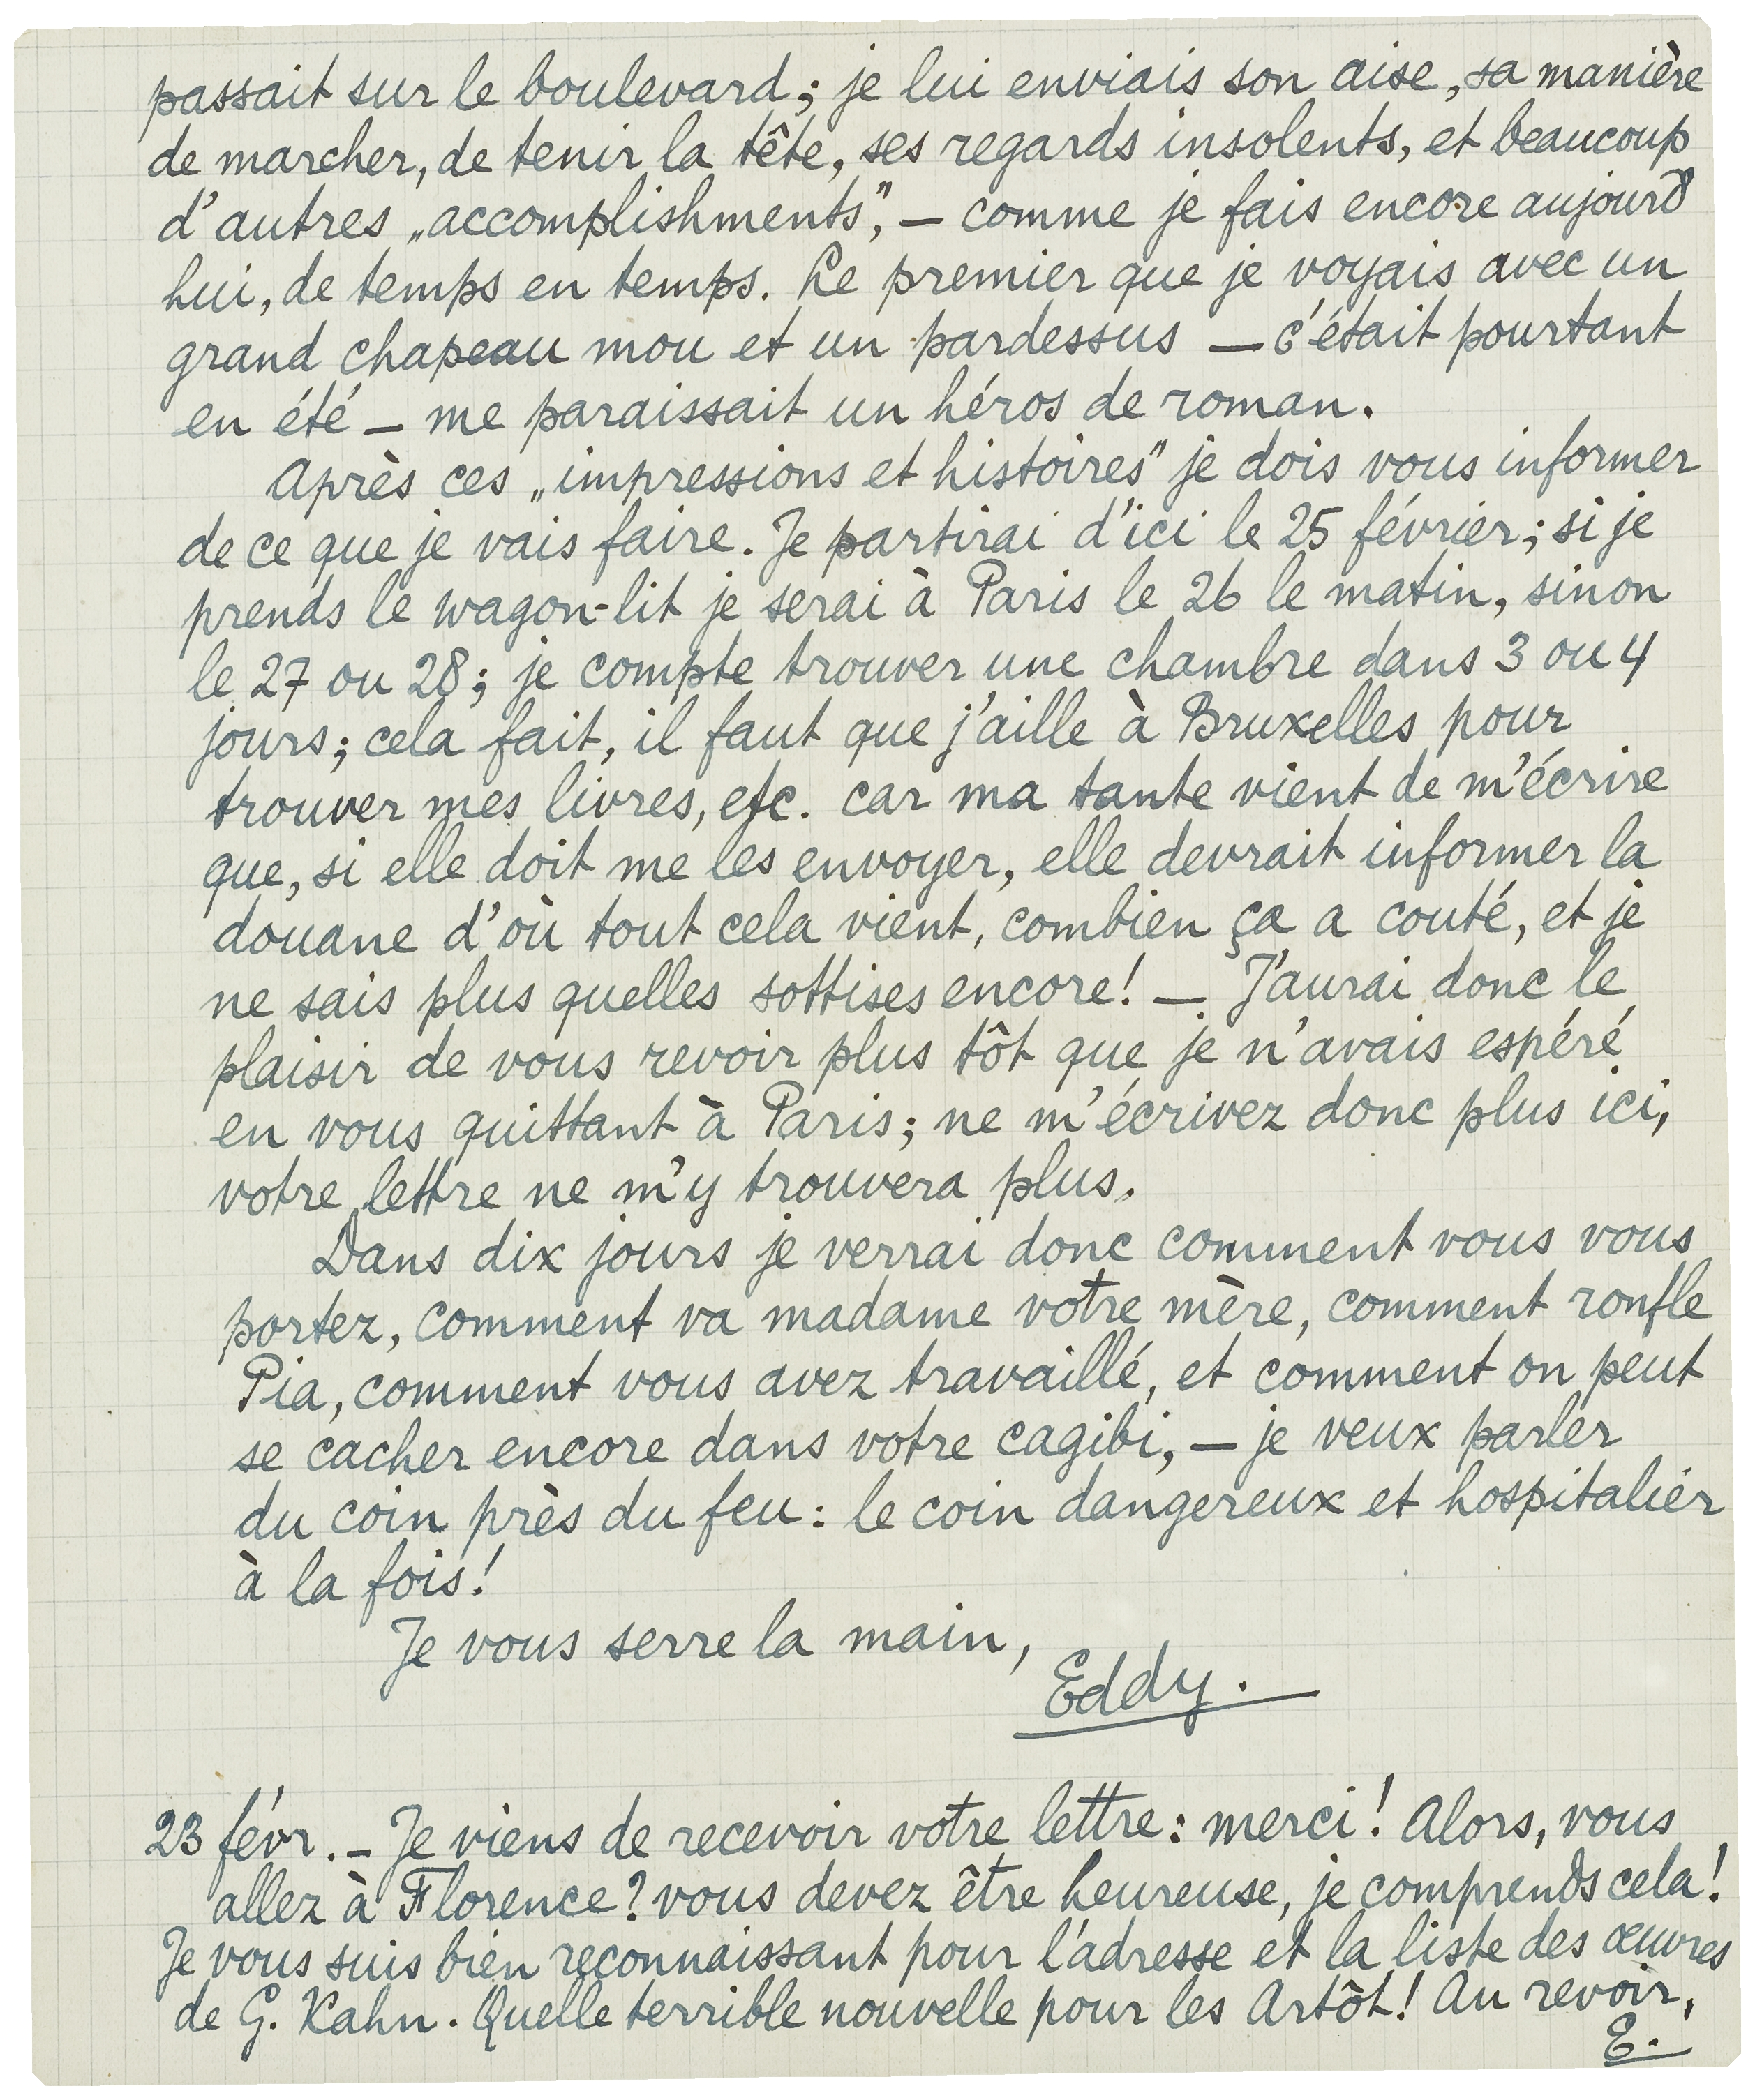 passait sur le boulevard; je lui enviais son aise, sa manière
de marcher, de tenir la tête, ses regards insolents, et beaucoup
d'autres „accomplishments”, — comme je fais encore aujourd'
hui, de temps en temps. Le premier que je voyais avec un
grand chapeau mou et un pardessus — c'était pourtant
en été — me paraissait un héros de roman.
Après ces „impressions et histoires” je dois vous informer
de ce que je vais faire. Je partirai d'ici le 25 février; si je
prends le wagon-lit je serai à Paris le 26 le matin, sinon
le 27 ou 28; je compte trouver une chambre dans 3 ou 4
jours; cela fait, il faut que j'aille à Bruxelles pour
trouver mes livres, etc. car ma tante vient de m'écrire
que, si elle doit me les envoyer, elle devrait informer la
douane d'où tout cela vient, combien ça a couté, et je
ne sais plus quelles sottises encore! — J'aurai donc le
plaisir de vous revoir plus tôt que je n'avais espéré
en vous quittant à Paris; ne m'écrivez donc plus ici,
votre lettre ne m'y trouvera plus.
Dans dix jours je verrai donc comment vous vous
portez, comment va madame votre mère, comment ronfle
Pia, comment vous avez travaillé, et comment on peut
se cacher encore dans votre cagibi, — je veux parler
du coin près du feu: le coin dangereux et hospitalier
à la fois!
Je vous serre la main,
Eddy.
23 févr. — Je viens de recevoir votre lettre: merci! Alors, vous
allez à Florence? vous devez être heureuse, je comprends cela!
Je vous suis bien reconnaissant pour l'adresse et la liste des œuvres
de G. Kahn. Quelle terrible nouvelle pour les Artôt! Au revoir,
E.